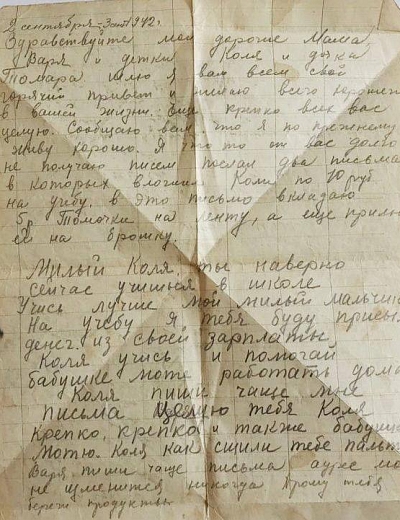 2 сентября 1942г.
Здравствуйте мои дорогие Мама
Варя и детки Коля и дочка
Томара. шлю я вам всем свой
горячий привет и желаю всего хорошего
в вашей жизни. Еще крепко всех вас
целую. Сообщаю вам что я по прежнему
живу хорошо. Я что то от вас долго
не получаю писем послал два письма
в которых вложил Коли по 10 руб
на учебу, в это письмо вкладаю
Томочки на ленту, а еще
ей на брошку.
Милый Коля, ты наверно
сейчас учишься в школе
Учись лучше мой милый мальчик
На учебу я тебя буду
денег из своей зарплаты
Коля учись и помогай
бабушке моте работать дома
Коля пиши чаще мне
письма Целую тебя Коля
крепко, крепко и также бабушку
Мотю. Коля как сшили тебе пальто
Варя, пиши чаще письма адрес мой
не изменится никогда Прошу тебя
береги продукты